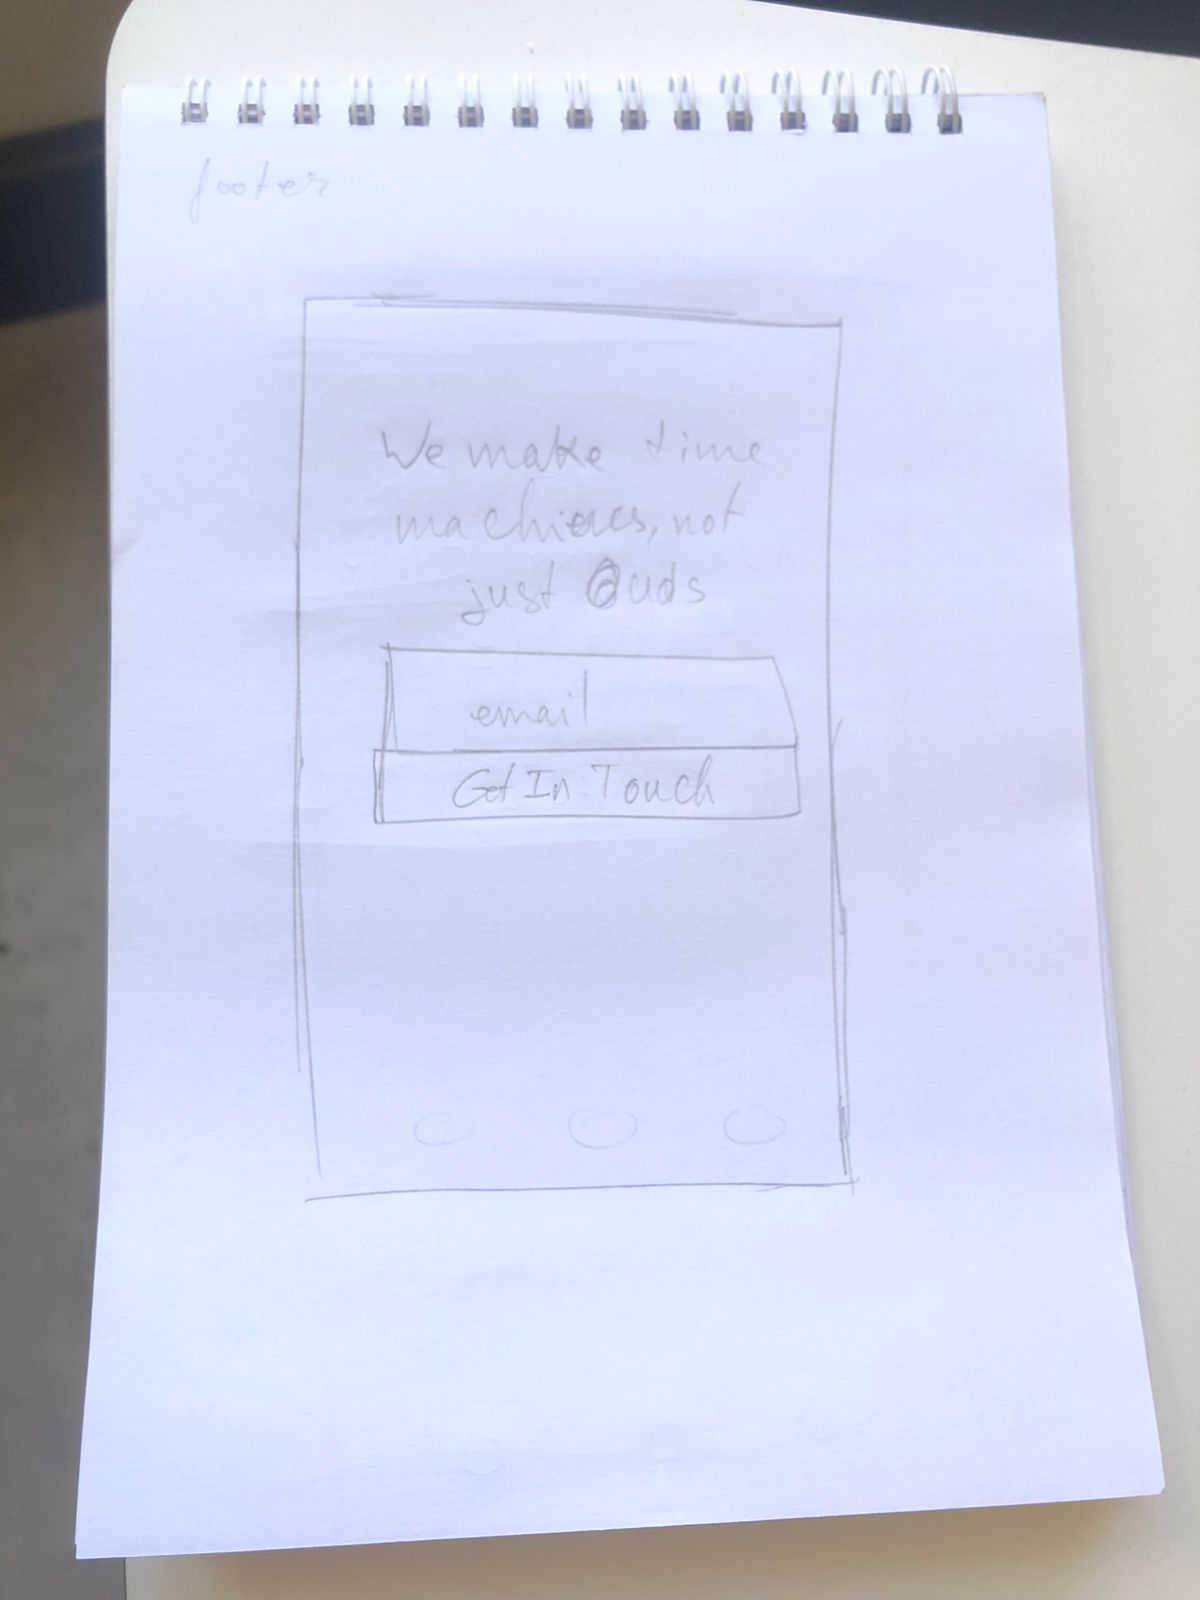 footer
We make time
machines, not
just
email
Get In Touch